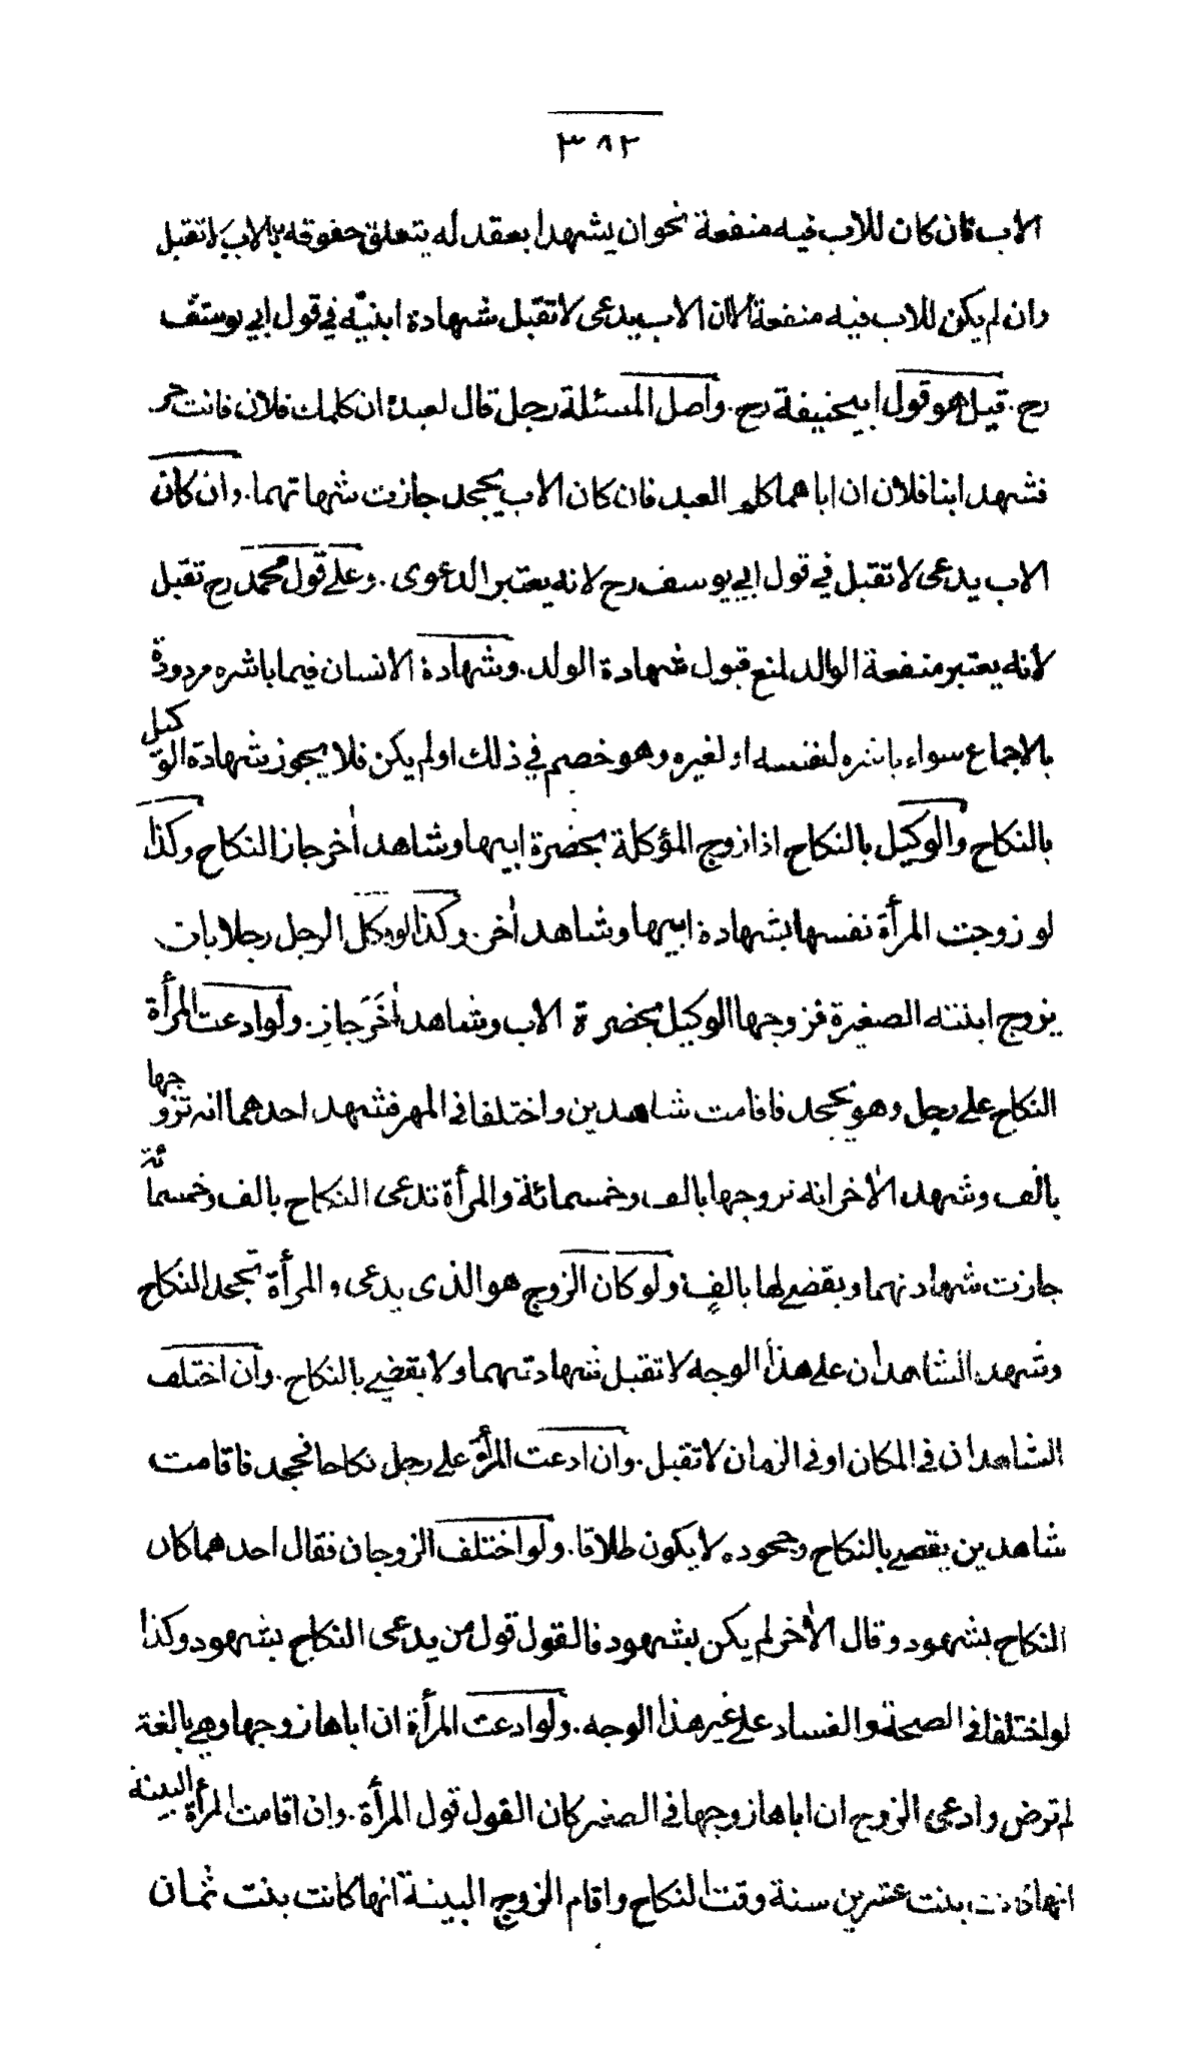 ٣٨٢
الاب فان كان للاب فيه منفعة نحو ان يشهدا بعقد له يتعلق حقوقه بالاب لا تقبل
وان لم يكن للاب فيه منفعة الا ان الاب يدعى لا تقبل شهادة ابنيه في قول ابي يوسف
رح . قيل هو قول ابيحنيفة رح . واصل المسئلة رجل قال لعبده ان كلمك فلان فانت حر
فشهد ابنا فلان ان اباهما كلم العبد فان كان الاب يجحد جازت شهاتهما . وان كان
الاب يدعى لا تقبل في قول ابي يوسف رح لانه يعتبر الدعوى . وعلى قول محمد رح تقبل
لانه يعتبر منفعة الوالد لمنع قبول شهادة الولد . وشهادة الانسان فيما باشره مردودة
بالاجماع سواء باشره لنفسه او لغيره وهو خصم في ذلك اولم يكن فلا يجوز شهادة الوكيل
بالنكاح والوكيل بالنكاح اذا زوج المؤكلة بحضرة ابيها وشاهد اٰخر جاز النكاح وكذا
لو زوجت المرأة نفسها بشهادة ابيها وشاهد اٰخر . وكذا لو وكل الرجل رجلا بان
يزوج ابنته الصغيرة فزوجها الوكيل بحضرة الاب وشاهد اٰخَرَ جاز . ولو ادعت المرأة
النكاح على رجل وهو يجحد فاقامت شاهدين واختلفا في المهر فشهد احدهما انه تزوجها
بالف وشهد الاٰخر انه تزوجها بالف وخمسمائة والمرأة تدعى النكاح بالف وخمسمائة
جازت شهادتهما ويقضي لها بالفٍ ولو كان الزوج هو الذى يدعى والمرأة تجحد النكاح
وشهد الشاهدان على هذا الوجه لا تقبل شهادتهما ولا يقضي بالنكاح . وان اختلف
الشاهدان في المكان او في الزمان لا تقبل . وان ادعت المرأة على رجل نكاحا فجحد فاقامت
شاهدين يقضي بالنكاح وجحوده لا يكون طلاقا . ولو اختلف الزوجان فقال احدهما كان
النكاح بشهود وقال الاٰخر لم يكن بشهود فالقول قول من يدعى النكاح بشهود وكذا
لو اختلفا في الصحة والفساد على غير هذا الوجه . ولو ادعت المرأة ان اباها زوجها وهي بالغة
لم ترض وادعى الزوج ان اباها زوجها في الصغر كان القول قول المرأة . وان اقامت المرأة البينة
انها كانت بنت عشرين سنة وقت النكاح واقام الزوج البينة انها كانت بنت ثمان